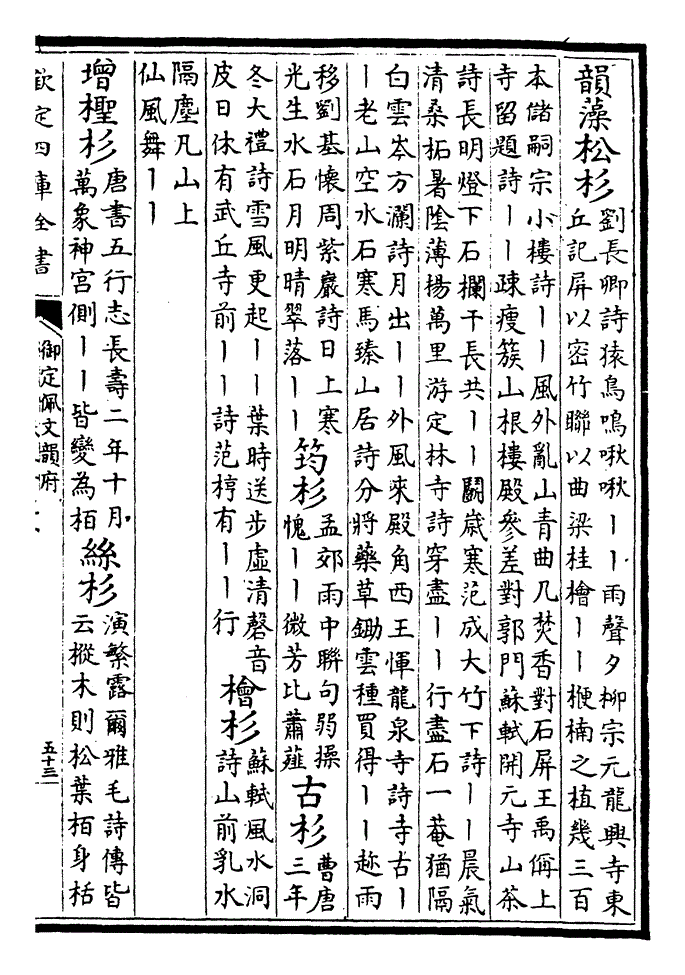 韻藻松杉
劉長卿詩猿鳥鳴啾啾丨丨雨聲夕柳宗元龍興寺東
丘記屏以密竹聯以曲梁桂檜丨丨楩楠之植幾三百
本儲嗣宗小樓詩丨丨風外亂山青曲几焚香對石屏王禹偁上
寺留題詩丨丨疎瘦簇山根樓殿參差對郭門蘇軾開元寺山茶
詩長明燈下石欄干長共丨丨鬭歲寒范成大竹下詩丨丨晨氣
清桑柘暑陰薄楊萬里游定林寺詩穿盡丨丨行盡石一菴猶隔
白雲岑方瀾詩月出丨丨外風來殿角西王惲龍泉寺詩寺古丨
丨老山空水石寒馬臻山居詩分將藥草鋤雲種買得丨丨趂雨
移劉基懷周紫巖詩日上寒
光生水石月明晴翠落丨丨
筠杉
孟郊雨中聯句弱操
愧丨丨微芳比蕭薤
古杉
曹唐
三年
冬大禮詩雪風更起丨丨葉時送步虛清磬音
皮日休有武丘寺前丨丨詩范梈有丨丨行
檜杉
蘇軾風水洞
詩山前乳水
隔塵凡山上
仙風舞丨丨
增檉杉
唐書五行志長壽二年十月
萬象神宮側丨丨皆變為栢
絲杉
演繁露爾雅毛詩傳皆
云樅木則松葉栢身栝
欽定四庫全書
御定佩文韻府
五十三